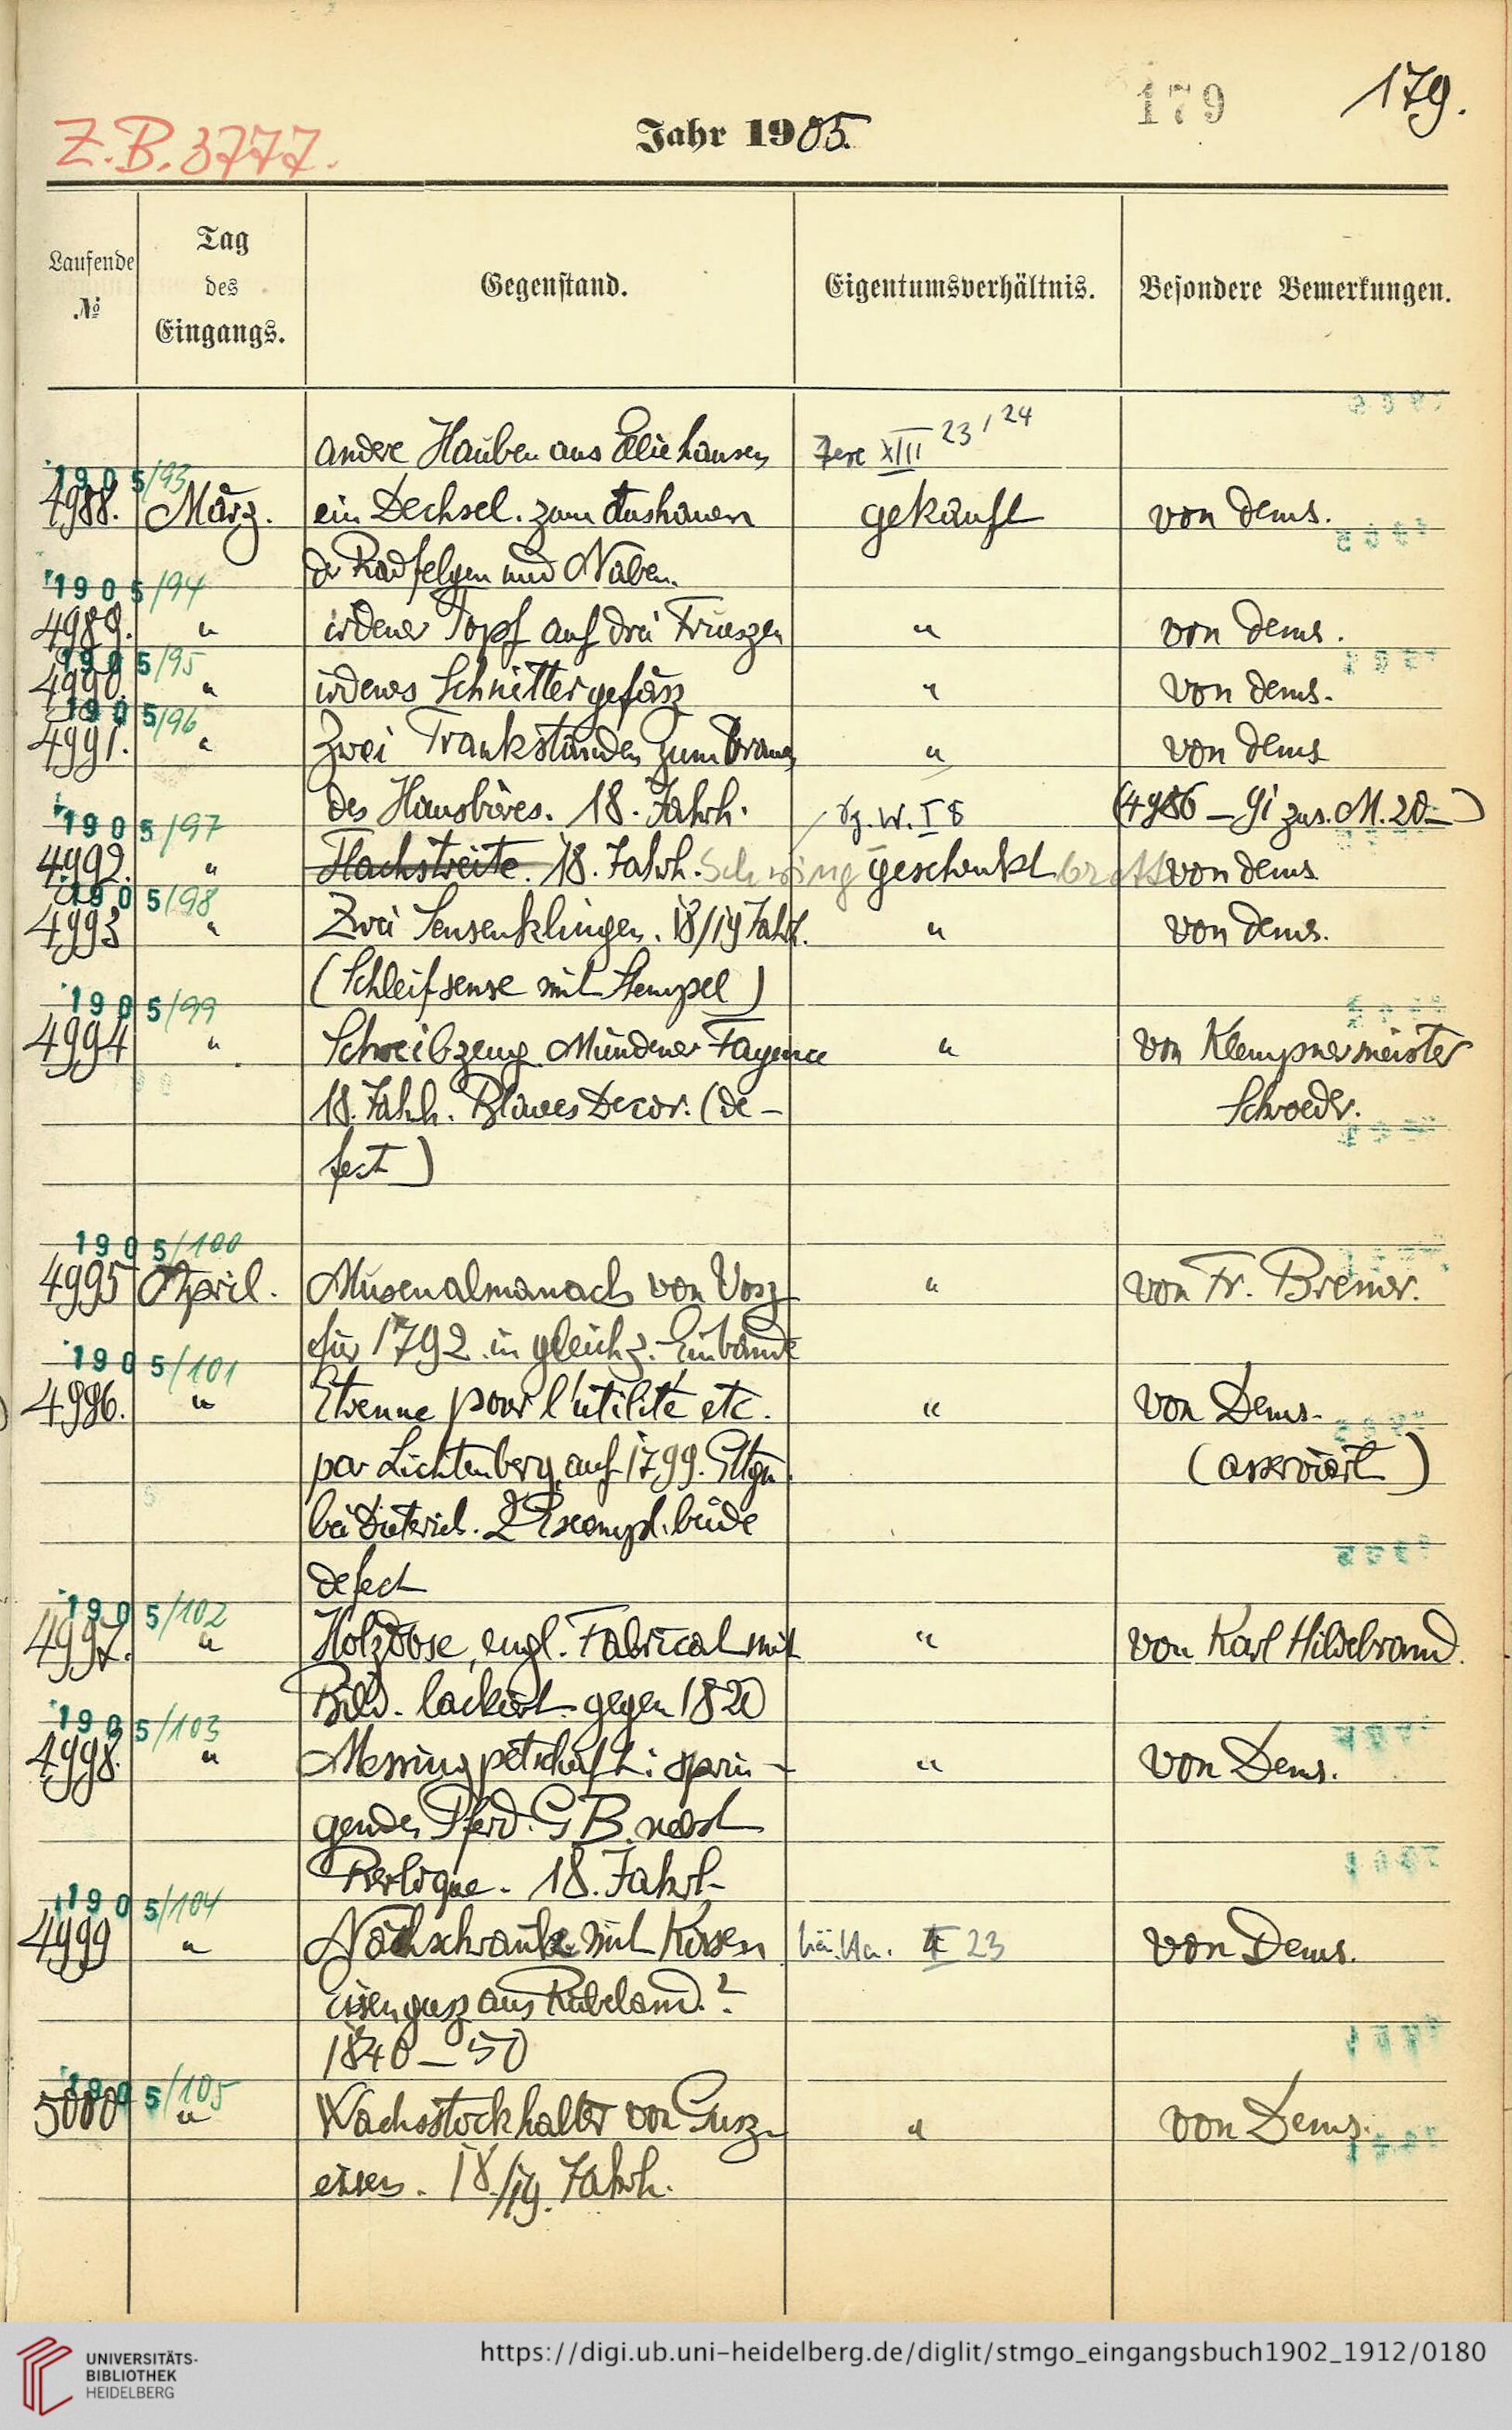 179
179.
Z.B. 3777.
Jahr 1905.
Laufende No
Tag des Eingangs.
Gegenstand.
Eigentumsverhältnis.
Besondere Bemerkungen.
andere Hauben aus Elliehausen XIII 23, 24
1905/93
4988. März. ein Dechsel. zum Aushauen gekauft von dems.
der Radfelgen und Naben.
1905/94
4989. " irdener Topf auf drei Fueszen " von dems.
1905/95
4990. " irdenes Schnittergefäsz " von dems.
1905/96
4991. " Zwei Trankständen zum Brauen " von dems
des Hausbieres. 18. Jahrh. W. I 8 (4986–91 zus. M. 20–)
1905/97
4992. " Flachstreite. 18. Jahrh. Schwing brett geschenkt von dems
1905/98
4993 " Zwei Sensenklingen. 18/19 Jahrh. " von dems.
(Schleifsense mit Stempel)
1905/99
4994 " Schreibzeug Mündener Fayence " von Klempnermeister
18. Jahrh. Blaues Decor. (de- Schroeder.
fect)
1905/100
4995 April. Musenalmanach von Vosz " von Fr. Bremer.
für 1792 in gleichz. Einbande
1905/101
4996. " Etrenne pour l'utilité etc. " von Dems.
par Lichtenberg auf 1799. Gttgn (asserviert)
bei Dieterich. 2 Exempl. beide
defect
1905/102
4997. " Holzdose, engl. Fabricat mit " von Karl Hildebrand.
Bild. lackiert gegen 1820
1905/103
4998. " Messingpetschaft: sprin- " von Dems.
gendes Pferd. G B nebst
Berloque. 18. Jahrh-
1905/104
4999 " Nähschraube mit Kissen II 23 von Dems.
eisengusz aus Rübeland?
1840–50
1905/105
5000 " Wachsstockhalter von Gusz- " von Dems.
eisen. 18./19. Jahrh.
UNIVERSITÄTS-
BIBLIOTHEK
HEIDELBERG
https://digi.ub.uni-heidelberg.de/diglit/stmgo_eingangsbuch1902_1912/0180